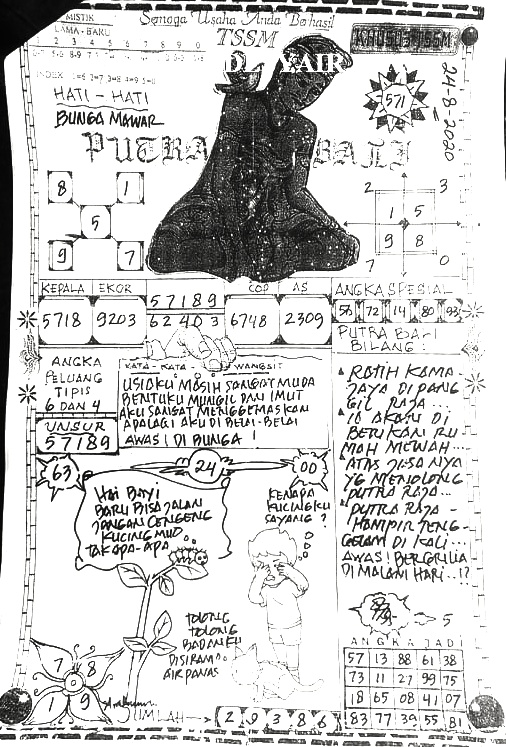 MISTIK
LAMA - BARU
Semoga Usaha Anda Berhasil
TSSM
KHUSUS TSSM
2 3 4 5 6 7 8 9 0
INDEX
HATI - HATI
BUNGA MAWAR
571
24-8-2020
PUTRA BALI
8 1
5
9 7
2 3
1 5
9 8
7 0
KEPALA EKOR
5718 9203
57189
62403
COP AS
6748 2309
ANGKA SPESIAL
58 72 14 80 93
PUTRA BALI
BILANG :
ANGKA
PELUANG
TIPIS
6 DAN 4
UNSUR
57189
KATA - KATA WANGSIT
USIAKU MASIH SANGAT MUDA
BENTUKU MUNGIL DAN IMUT
AKU SANGAT MENGGEMASKAN
APALAGI AKU DI BELAI-BELAI
AWAS! DI BUNGA !
RATIH KAMA-
JAYA DI PANG
GIL RAJA...
IA AKAN DI
BERIKAN RU
MAH MEWAH...
ATAS JASA NYA
YG MENOLONG
PUTRA RAJA...
PUTRA RAJA -
HAMPIR TENG-
GELAM DI KALI...
AWAS! BERGRILIA
DI MALAM HARI..!?
63
24
00
HAI BAYI
BARU BISA JALAN
JANGAN CENGENG
KUCING MUD..
TAK APA-APA
KENAPA
KUCINGKU
SAYANG ?
TOLONG
TOLONG
BADANKU
DISIRAM
AIR PANAS
5
7 8
1 9
JUMLAH → 2 9 3 8 6
ANGKA JADI
57 13 88 61 38
73 11 27 99 75
18 65 08 41 07
83 77 39 55 81